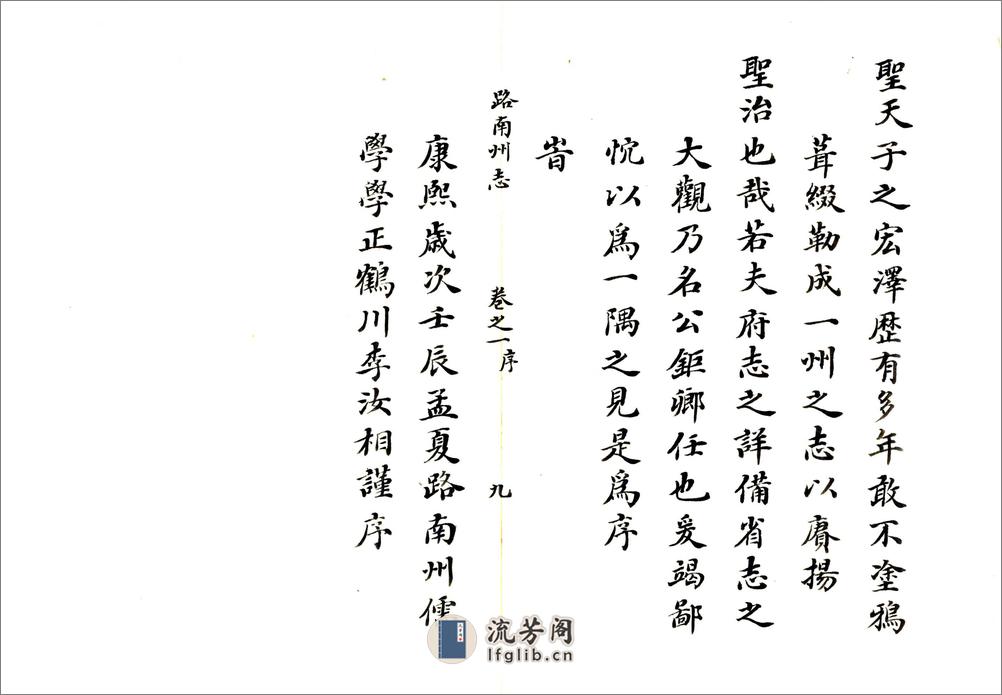 聖天子之宏澤歷有多年敢不塗鴉
葺綴勒成一州之志以賡揚
聖治也哉若夫府志之詳備省志之
大觀乃名公鉅卿任也爰竭鄙
忱以爲一隅之見是爲序
旹
路南州志 卷之一序 九
康熙歲次壬辰孟夏路南州儒
學學正鶴川李汝相謹序
流芳阁
lfglib.cn